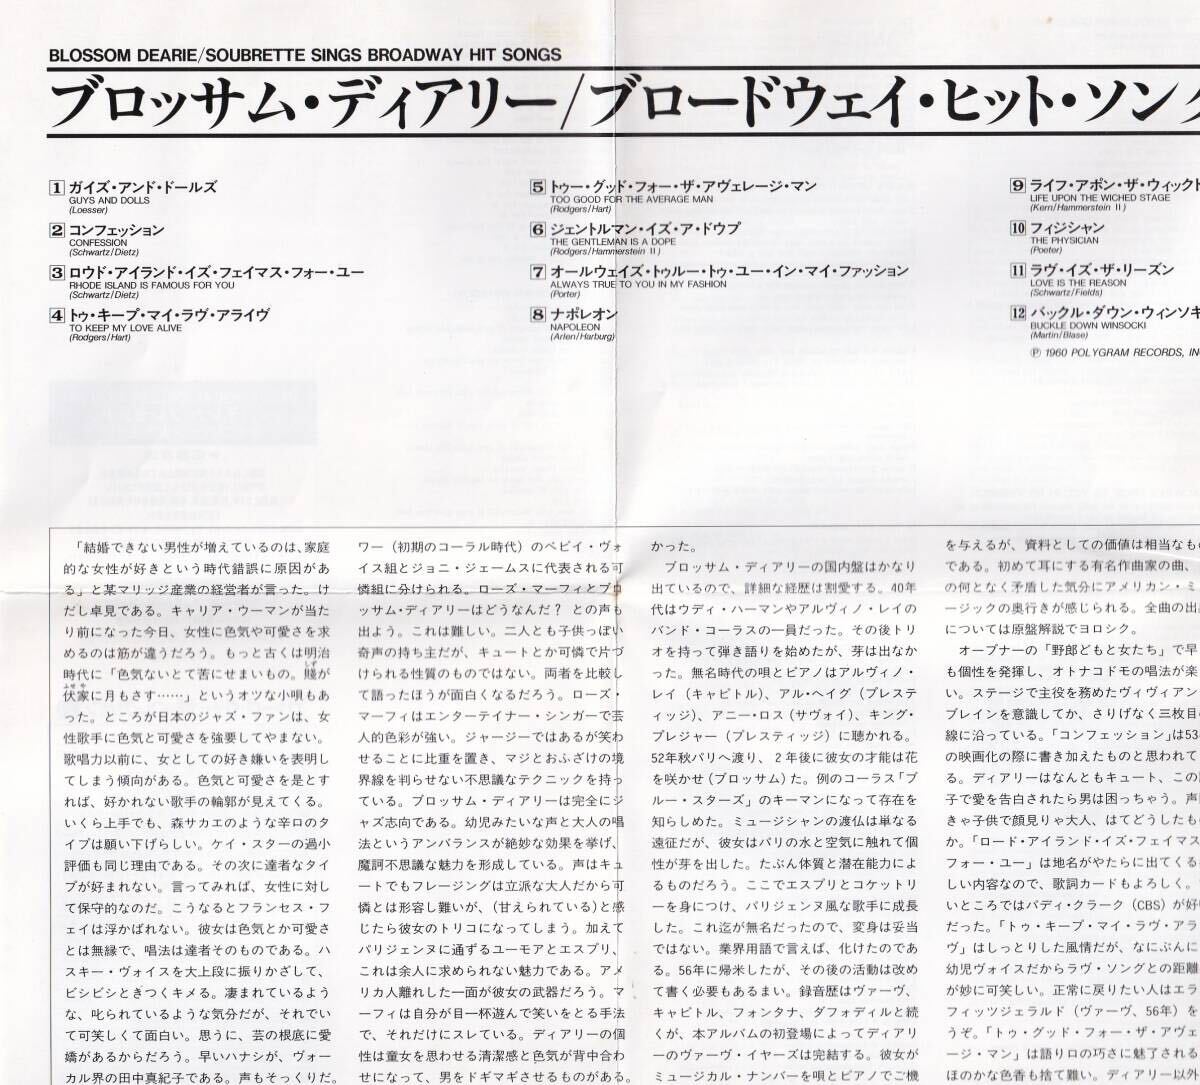 BLOSSOM DEARIE/SOUBRETTE SINGS BROADWAY HIT SONGS
ブロッサム・ディアリー/ブロードウェイ・ヒット・ソング
1 ガイズ・アンド・ドールズ
GUYS AND DOLLS
(Loesser)
2 コンフェッション
CONFESSION
(Schwartz/Dietz)
3 ロウド・アイランド・イズ・フェイマス・フォー・ユー
RHODE ISLAND IS FAMOUS FOR YOU
(Schwartz/Dietz)
4 トゥ・キープ・マイ・ラヴ・アライヴ
TO KEEP MY LOVE ALIVE
(Rodgers/Hart)
5 トゥー・グッド・フォー・ザ・アヴェレージ・マン
TOO GOOD FOR THE AVERAGE MAN
(Rodgers/Hart)
6 ジェントルマン・イズ・ア・ドウプ
THE GENTLEMAN IS A DOPE
(Rodgers/Hammerstein II)
7 オールウェイズ・トゥルー・トゥ・ユー・イン・マイ・ファッション
ALWAYS TRUE TO YOU IN MY FASHION
(Porter)
8 ナポレオン
NAPOLEON
(Arlen/Harburg)
9 ライフ・アポン・ザ・ウィックト
LIFE UPON THE WICHED STAGE
(Kern/Hammerstein II)
10 フィジシャン
THE PHYSICIAN
(Poeter)
11 ラヴ・イズ・ザ・リーズン
LOVE IS THE REASON
(Schwartz/Fields)
12 バックル・ダウン・ウィンソキ
BUCKLE DOWN WINSOCKI
(Martin/Blase)
Ⓟ 1960 POLYGRAM RECORDS, IN
「結婚できない男性が増えているのは、家庭
的な女性が好きという時代錯誤に原因があ
る」と某マリッジ産業の経営者が言った。け
だし卓見である。キャリア・ウーマンが当た
り前になった今日、女性に色気や可愛さを求
めるのは筋が違うだろう。もっと古くは明治
時代に「色気ないとて苦にせまいもの。賤が
伏家に月もさす……」というオツな小唄もあ
った。ところが日本のジャズ・ファンは、女
性歌手に色気と可愛さを強要してやまない。
歌唱力以前に、女としての好き嫌いを表明し
てしまう傾向がある。色気と可愛さを是とす
れば、好かれない歌手の輪郭が見えてくる。
いくら上手でも、森サカエのような辛口のタ
イプは願い下げらしい。ケイ・スターの過小
評価も同じ理由である。その次に達者なタイ
プが好まれない。言ってみれば、女性に対し
て保守的なのだ。こうなるとフランセス・フ
ェイは浮かばれない。彼女は色気とか可愛さ
とは無縁で、唱法は達者そのものである。ハ
スキー・ヴォイスを大上段に振りかざして、
ビシビシときつくキメる。凄まれているよう
な、叱られているような気分だが、それでい
て可笑しくて面白い。思うに、芸の根底に愛
嬌があるからだろう。早いハナシが、ヴォー
カル界の田中真紀子である。声もそっくりだ。
ワー（初期のコーラル時代）のベビイ・ヴォ
イス組とジョニ・ジェームスに代表される可
憐組に分けられる。ローズ・マーフィとブロ
ッサム・ディアリーはどうなんだ？ との声も
出よう。これは難しい。二人とも子供っぽい
奇声の持ち主だが、キュートとか可憐で片づ
けられる性質のものではない。両者を比較し
て語ったほうが面白くなるだろう。ローズ・
マーフィはエンターテイナー・シンガーで芸
人的色彩が強い。ジャージーではあるが笑わ
せることに比重を置き、マジとおふざけの境
界線を判らせない不思議なテクニックを持っ
ている。ブロッサム・ディアリーは完全にジ
ャズ志向である。幼児みたいな声と大人の唱
法というアンバランスが絶妙な効果を挙げ、
魔訶不思議な魅力を形成している。声はキュ
ートでもフレージングは立派な大人だから可
憐とは形容し難いが、（甘えられている）と感
じたら彼女のトリコになってしまう。加えて
パリジェンヌに通ずるユーモアとエスプリ、
これは余人に求められない魅力である。アメ
リカ人離れした一面が彼女の武器だろう。マ
ーフィは自分が目一杯遊んで笑いをとる手法
で、それだけにスレている。ディアリーの個
性は童女を思わせる清潔感と色気が背中合わ
せになって、男をドギマギさせるものがある。
かった。
ブロッサム・ディアリーの国内盤はかなり
出ているので、詳細な経歴は割愛する。40年
代はウディ・ハーマンやアルヴィノ・レイの
バンド・コーラスの一員だった。その後トリ
オを持って弾き語りを始めたが、芽は出なか
った。無名時代の唄とピアノはアルヴィノ・
レイ（キャピトル）、アル・ヘイグ（プレステ
ィッジ）、アニー・ロス（サヴォイ）、キング・
プレジャー（プレスティッジ）に聴かれる。
52年秋パリへ渡り、2年後に彼女の才能は花
を咲かせ（ブロッサム）た。例のコーラス「ブ
ルー・スターズ」のキーマンになって存在を
知らしめた。ミュージシャンの渡仏は単なる
遠征だが、彼女はパリの水と空気に触れて個
性が芽を出した。たぶん体質と潜在能力によ
るものだろう。ここでエスプリとコケットリ
ーを身につけ、パリジェンヌ風な歌手に成長
した。これ迄が無名だったので、変身は妥当
ではない。業界用語で言えば、化けたのであ
る。56年に帰米したが、その後の活動は改め
て書く必要もあるまい。録音歴はヴァーヴ、
キャピトル、フォンタナ、ダフォディルと続
くが、本アルバムの初登場によってディアリ
ーのヴァーヴ・イヤーズは完結する。彼女が
ミュージカル・ナンバーを唄とピアノでご機
を与えるが、資料としての価値は相当なもの
である。初めて耳にする有名作曲家の曲、
の何となく矛盾した気分にアメリカン・ミ
ージックの奥行きが感じられる。全曲の出
については原盤解説でヨロシク。
オープナーの「野郎どもと女たち」で早
も個性を発揮し、オトナコドモの唱法が楽
い。ステージで主役を務めたヴィヴィアン
ブレインを意識してか、さりげなく三枚目
線に沿っている。「コンフェッション」は53
の映画化の際に書き加えたものと思われて
る。ディアリーはなんともキュート、この
子で愛を告白されたら男は困っちゃう。声
きゃ子供で顔見りゃ大人、はてどうしたも
か。「ロード・アイランド・イズ・フェイマス
フォー・ユー」は地名がやたらに出てくる
しい内容なので、歌詞カードもよろしく。
いところではバディ・クラーク（CBS）が好
だった。「トゥ・キープ・マイ・ラヴ・アラ
ヴ」はしっとりした風情だが、なにぶんに
幼児ヴォイスだからラヴ・ソングとの距離
が妙に可笑しい。正常に戻りたい人はエラ
フィッツジェラルド（ヴァーヴ、56年）を
うぞ。「トゥ・グッド・フォー・ザ・アヴェ
ージ・マン」は語り口の巧さに魅了される
ほのかな色香も捨て難い。ディアリー以外